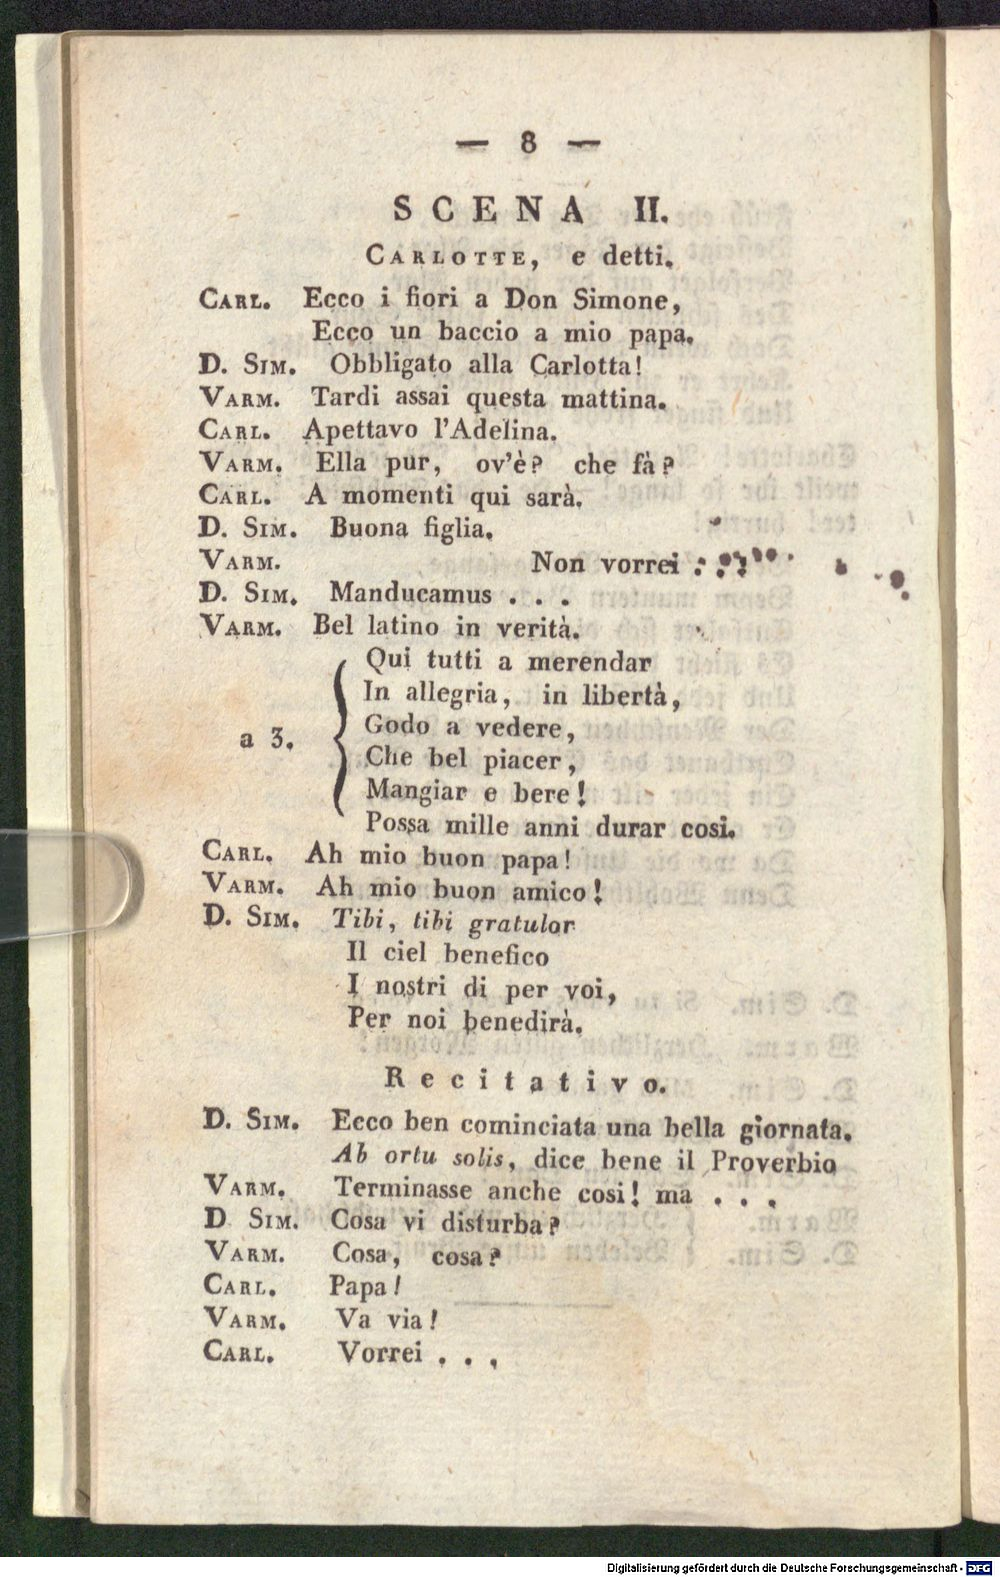 — 8 —
SCENA II.
CARLOTTE, e detti.
CARL. Ecco i fiori a Don Simone,
Ecco un baccio a mio papa.
D. SIM. Obbligato alla Carlotta!
VARM. Tardi assai questa mattina.
CARL. Apettavo l'Adelina.
VARM. Ella pur, ov'è? che fà?
CARL. A momenti qui sarà.
D. SIM. Buona figlia.
VARM. Non vorrei . . .
D. SIM. Manducamus . . .
VARM. Bel latino in verità.
Qui tutti a merendar
In allegria, in libertà,
a 3. Godo a vedere,
Che bel piacer,
Mangiar e bere!
Possa mille anni durar cosi.
CARL. Ah mio buon papa!
VARM. Ah mio buon amico!
D. SIM. Tibi, tibi gratulor
Il ciel benefico
I nostri di per voi,
Per noi benedirà.
Recitativo.
D. SIM. Ecco ben cominciata una bella giornata.
Ab ortu solis, dice bene il Proverbio
VARM. Terminasse anche cosi! ma . . .
D SIM. Cosa vi disturba?
VARM. Cosa, cosa?
CARL. Papa!
VARM. Va via!
CARL. Vorrei . . .
Digitalisierung gefördert durch die Deutsche Forschungsgemeinschaft - DFG